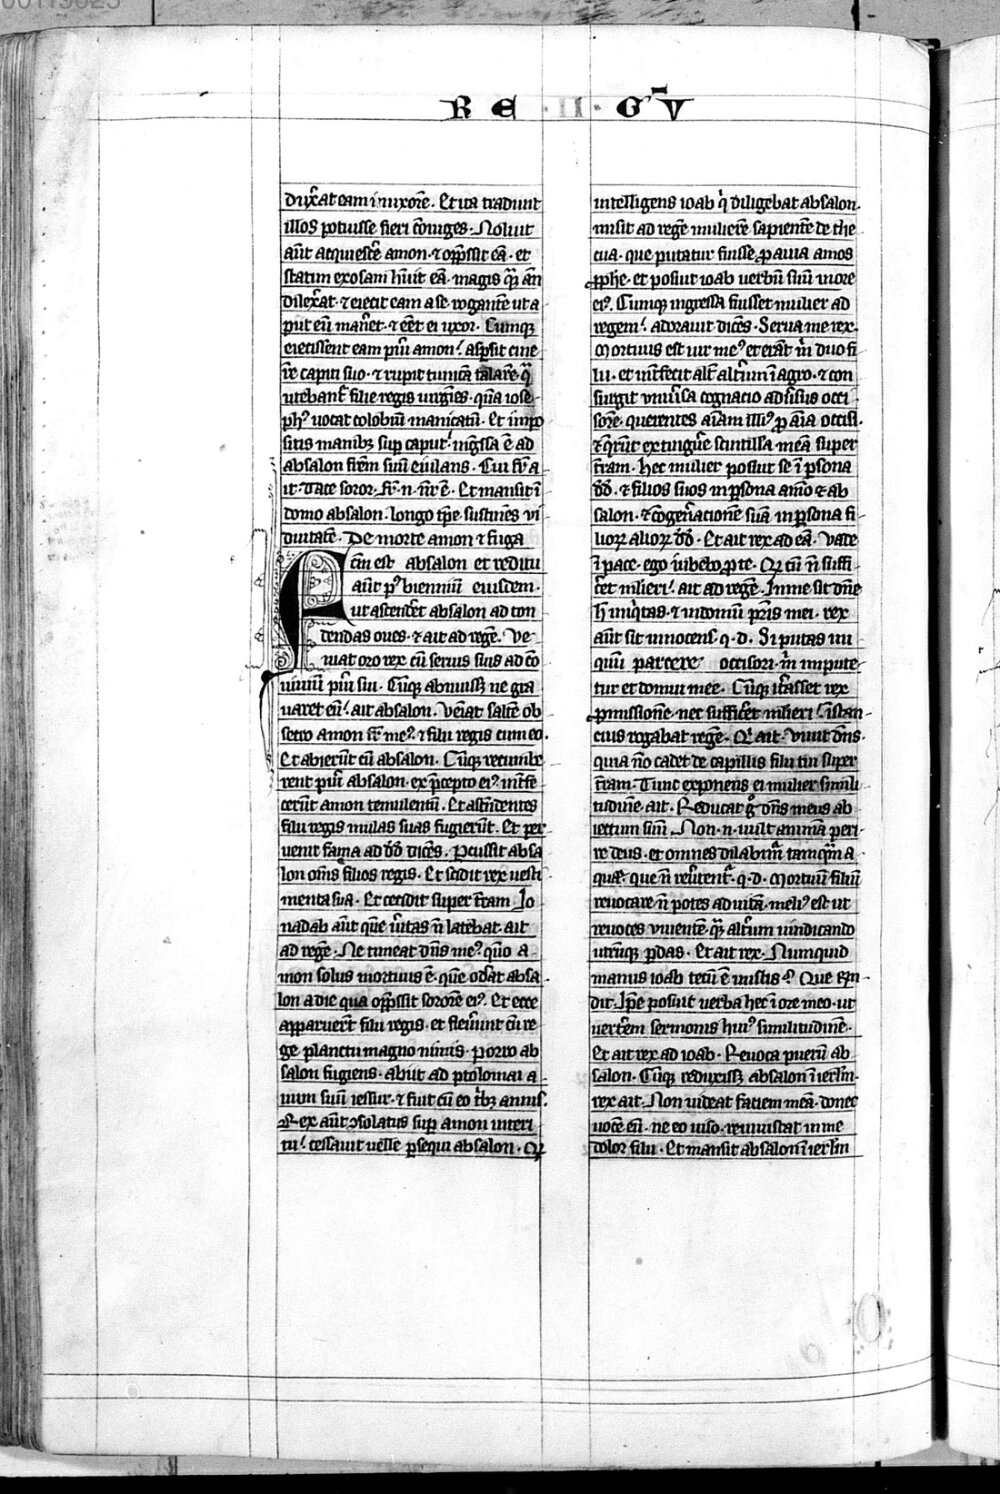 00113025
R E · II · G̅ V
dux̾at eam ī uxorē . Et ita tradunt
illos potuisse fieri cōiuges . Noluit
aūt acquiesc̾e amon . ⁊ opp̄ssit eā . et
statim exosam h̾uit eā . magis qͣ̄ an̄
dilex̾at . ⁊ eiecit eam a se rogantē ut a
put eū man̾et . ⁊ eēt ei uxor . Cumqꝫ
eiecissent eam pu̾i amon . asp̾sit cine
rē capiti suo . ⁊ rupit tunicā talarē . qͣ
utebant᷑ filie regis uirgīes . quā iose
phꝰ uocat colobiū manicatū . Et impo
sitis manibꝫ sup̄ caput . īg̾ssa ē ad
absalon frēm suū eiulans . Cui fr̄ a
it . Tace soror . fr̄ . n . nr̄ ē . Et mansit ī
domo absalon . longo tp̄e sustinēs ui
duitatē . De morte amon ⁊ fuga
absalon et reditu
Factū est aūt pꝰ bienniū eiusdem .
ut ascend̾et absalon ad ton
dendas oues . ⁊ ait ad regē . Ve
niat oro rex cū seruis suis ad cō
uiuiū pu̾i sui . Cūqꝫ abnuissꝫ ne gra
uaret eū . ait absalon . Veniat saltē ob
secro amon fr̄ meꝰ . ⁊ filii regis cum eo .
Et abierūt cū absalon . Cūqꝫ recumbe
rent pu̾i absalon . ex p̄cepto eiꝰ . int̾fe
cerūt amon temulentū . Et ascēdentes
filii regis mulas suas fugierūt . Et per
uenit fama ad dd̄ dicēs . Pcussit absa
lon om̄s filios regis . Et scidit rex uesti
menta sua . Et cecidit super t̾ram . Io
nadab aūt quē u̾itas n̄ latebat . ait
ad regē . Ne timeat dn̄s meꝰ . qm̄o a
mon solus mortuus ē . quē od̾at absa
lon a die qua opp̄ssit sororē eiꝰ . Et ecce
apparuert̄ filii regis . et fleuūnt cū re
ge planctu magno nimis . Porro ab
salon fugiens . abiit ad ptolomai a
uum suū iessur . ⁊ fuit cū eo tͥbꝫ annis .
Rex aūt ꝯsolatus sup̄ amon interi
tu . cessauit uelle ꝑsequi absalon . Qꝫ
intelligens ioab qͥ diligebat absalon .
misit ad regē mulierē sapientē de the
cua . que putatur fuisse ꝓauia amos
ꝓphe . et posuit ioab uerbū suū in ore
eiꝰ . Cumqꝫ ingressa fuisset mulier ad
regem . adorauit dicēs . Serua me rex .
Mortuus est uir meꝰ et erāt m̄ duo fi
lii . et int̾fecit alt̾ alt̾um ī agro . ⁊ con
surgit uniu̾sa cognacio aduersus occi
sorē . querentes aīam illiꝰ ꝓ aīa occisi .
⁊ q̄runt extingue̾ scintillā meā super
t̾ram . Hec mulier posuit se ī ꝑsona
dd̄ . ⁊ filios suos in ꝑsona amō ⁊ ab
salon . ⁊ cogen̾acionē suā in ꝑsona fi
lioꝝ alioꝝ dd̄ . Et ait rex ad eā . Vade
ī pace . ego iubebo ꝓ te . Qꝫ cū n̄ suffi
c̾et ml̾ieri . ait ad regē . In me sit dn̄e
h̄ iniqͥtas . ⁊ in domū pr̄is mei . rex
aūt sit innocens . q . d . Si putas ini
quū parcere occisori . m̄ impute
tur et domui mee . Cūqꝫ it̾asset rex
ꝓmissionē . nec suffic̾et ml̾ieri . istan
cius rogabat regē . Qͥ ait . Viuit dn̄s .
quia nō cadet de capillis filii tui super
t̾ram . Tunc exponens ei mulier simili
tudinē . ait . Reducat gͦ dn̄s meus ab
iectum suū . Non . n . uult animā peri
re deus . et omnes dilabim̄ tamqͣm a
que . que n̄ reu̾tent᷑ . q . d . Mortuū filiū
reuocare n̄ potes ad uitā . meliꝰ est ut
reuoces uiuentē . qͣ̄ alt̾um uindicando
utrūqꝫ ꝑdas . Et ait rex . Numquid
manus ioab tecū ē in istis . Que rn̄
dit . Ip̄e posuit uerba hec ī ore meo . ut
uert̾em sermonis huiꝰ similitudinē .
Et ait rex ad ioab . Reuoca puerū ab
salon . Cūqꝫ reduxissꝫ absalon ī ierl̄m .
rex ait . Non uideat faciem meā . donec
uocē eū . ne eo uiso . reuiuiscat in me
dolor filii . Et mansit absalon ī ierl̄m